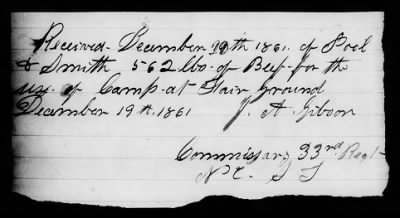 Received December 19th 1861. of Pool
& Smith 562 lbs. of Beef for the
use of Camp at Fair ground
December 19th 1861 J. A. Gibson
Commissary 33rd Regt
N C S T